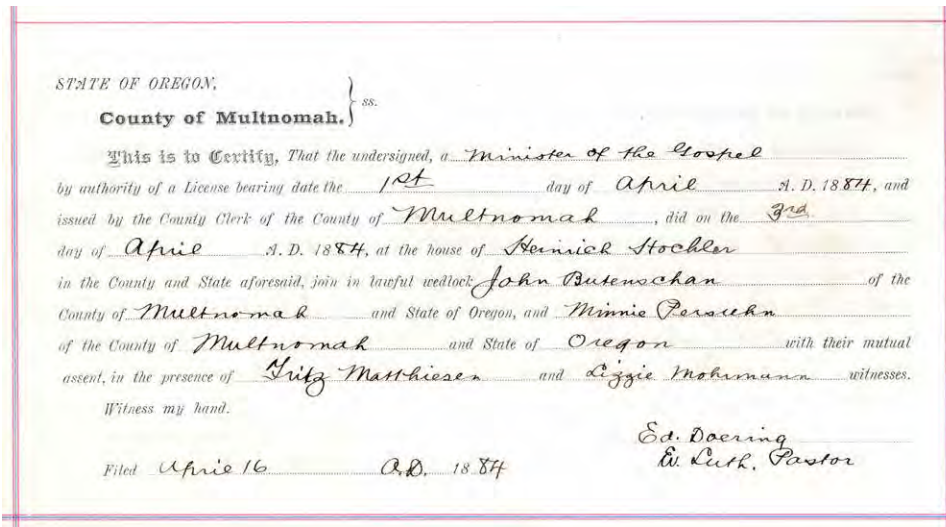 STATE OF OREGON,
County of Multnomah. } ss.
This is to Certify, That the undersigned, a Minister of the Gospel
by authority of a License bearing date the 1st day of April A. D. 1884, and
issued by the County Clerk of the County of Multnomah, did on the 3rd
day of April A. D. 1884, at the house of Heinrich Stochler
in the County and State aforesaid, join in lawful wedlock John Butenschan of the
County of Multnomah and State of Oregon, and Minnie Persuhn
of the County of Multnomah and State of Oregon with their mutual
assent, in the presence of Fritz Matthiesen and Lizzie Mohrmann witnesses.
Witness my hand.
Ed. Doering
Ev. Luth. Pastor
Filed April 16 A.D. 1884